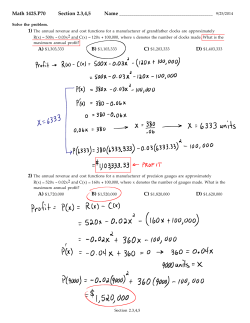 Math 1425.P70 Section 2.3,4,5 Name 9/25/2014
Solve the problem.
1) The annual revenue and cost functions for a manufacturer of grandfather clocks are approximately
R(x) = 500x - 0.03x² and C(x) = 120x + 100,000, where x denotes the number of clocks made. What is the
maximum annual profit?
A) $1,303,333 B) $1,103,333 C) $1,203,333 D) $1,403,333
Profit → R(x) - C(x) = 500x - 0.03x² - (120x + 100,000)
= 500x - 0.03x² - 120x - 100,000
P(x) = 380x - 0.03x² - 100,000
P'(x) = 380 - 0.06x
0 = 380 - 0.06x
0.06x = 380 → x = 380/.06 → x = 6333 units
x = 6333
P(6333) = 380(6333.33) - 0.03(6333.33)² - 100,000
= $1,103,333.33 ← PROFIT
2) The annual revenue and cost functions for a manufacturer of precision gauges are approximately
R(x) = 520x - 0.02x² and C(x) = 160x + 100,000, where x denotes the number of gauges made. What is the
maximum annual profit?
A) $1,720,000 B) $1,520,000 C) $1,620,000 D) $1,820,000
Profit = P(x) = R(x) - C(x)
= 520x - 0.02x² - (160x + 100,000)
= -0.02x² + 360x - 100,000
P'(x) = -0.04x + 360 = 0 → 360 = 0.04x
9000 units = x
P(9000) = -0.02(9000)² + 360(9000) - 100,000
= $1,520,000
Section 2.3,4,5